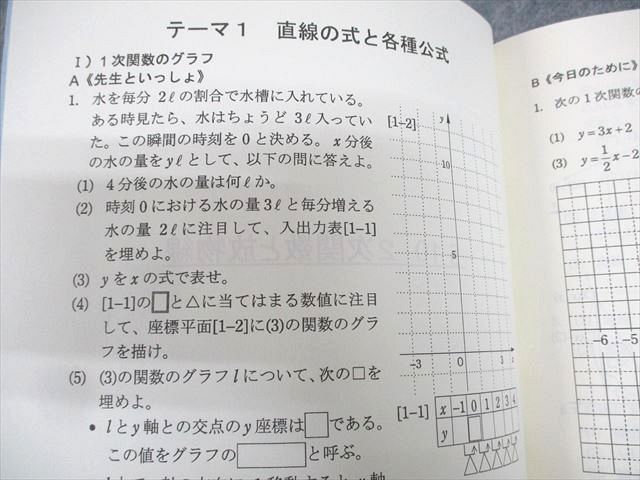 テーマ1 直線の式と各種公式
Ⅰ）1次関数のグラフ
A《先生といっしょ》
1. 水を毎分 2ℓの割合で水槽に入れている。
ある時見たら、水はちょうど 3ℓ入ってい
た。この瞬間の時刻を0と決める。x分後
の水の量をyℓとして、以下の問に答えよ。
(1) 4分後の水の量は何ℓか。
(2) 時刻0における水の量3ℓと毎分増える
水の量 2ℓに注目して、入出力表[1-1]
を埋めよ。
(3) yをxの式で表せ。
(4) [1-1]の□と△に当てはまる数値に注目
して、座標平面[1-2]に(3)の関数のグラ
フを描け。
(5) (3)の関数のグラフlについて、次の□を
埋めよ。
• lとy軸との交点のy座標は□である。
この値をグラフの□と呼ぶ。
[1-2]
y
10
5
-3 0 3
[1-1]
x -1 0 1 2 3 4
y
B《今日のために》
1. 次の1次関数の
(1) y=3x+2
(3) y=1/2x-2
-6 -5